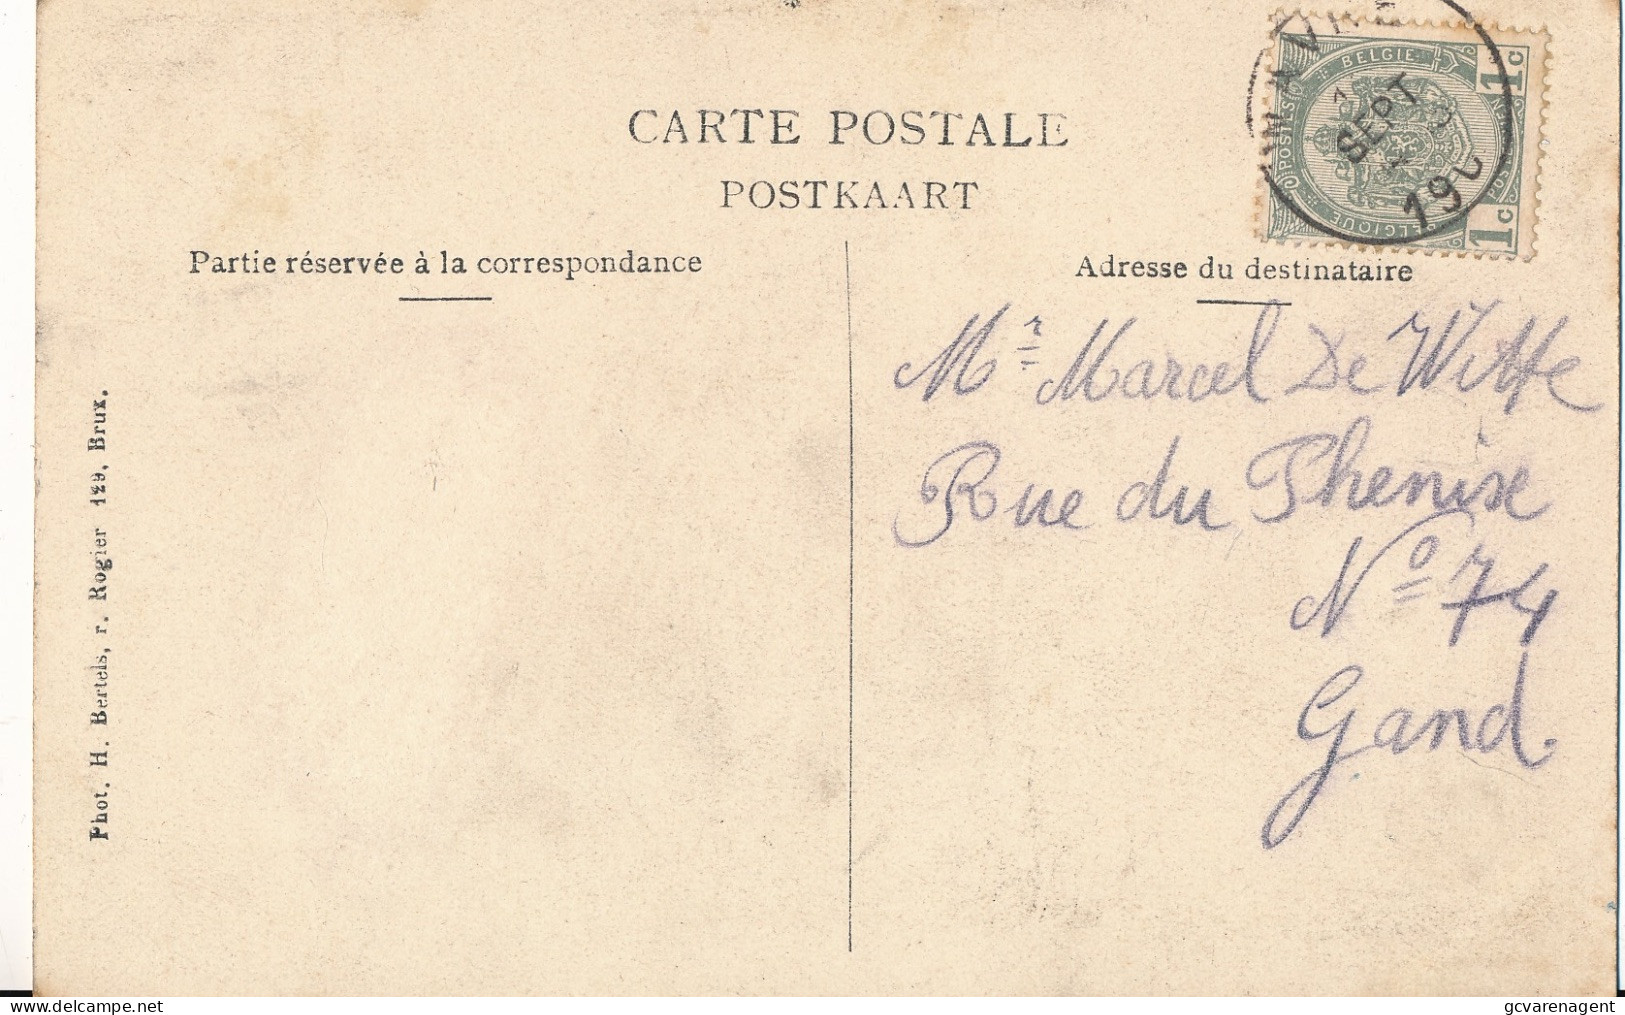 CARTE POSTALE
POSTKAART
Partie réservée à la correspondance
Adresse du destinataire
Mr Marcel De Witte
Rue du Phenix
No 74
Gand
Phot. H. Bertels, r. Rogier 129, Brux.
BELGIE
POSTES
BELGIQUE
1c
1c
SEPT
delcampe.net
gcvarenagent